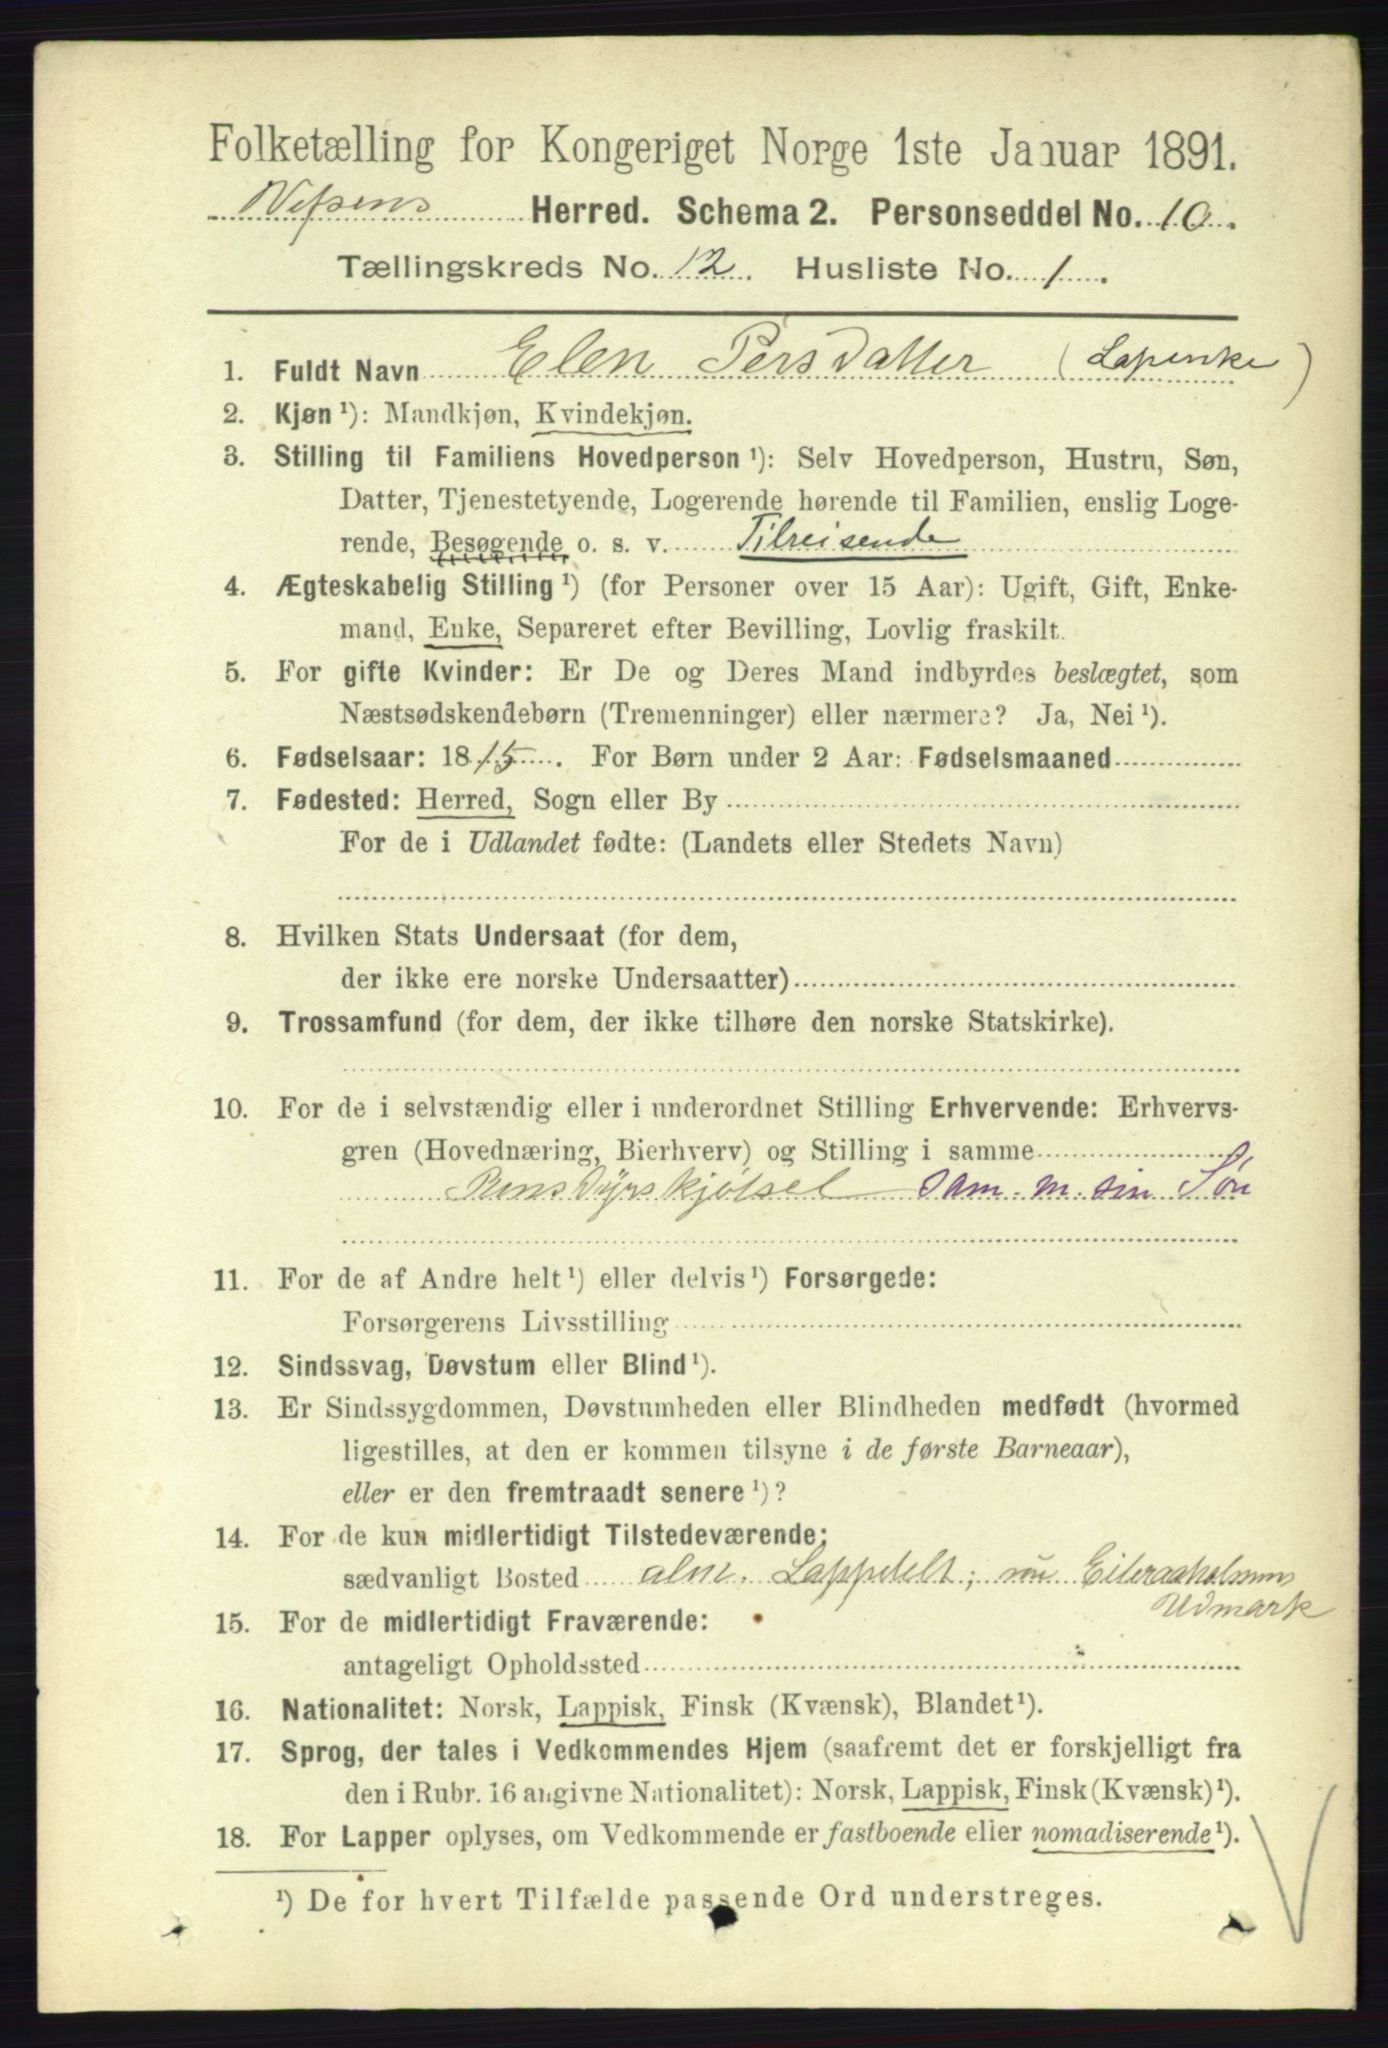 Folketælling for Kongeriget Norge 1ste Januar 1891.
Vefsens Herred. Schema 2. Personseddel No. 10.
Tællingskreds No. 12. Husliste No. 1.
1. Fuldt Navn Elen Persdatter (Lapenke)
2. Kjøn ¹): Mandkjøn, Kvindekjøn.
3. Stilling til Familiens Hovedperson ¹): Selv Hovedperson, Hustru, Søn,
Datter, Tjenestetyende, Logerende hørende til Familien, enslig Loge-
rende, Besøgende o. s. v. Tilreisende
4. Ægteskabelig Stilling ¹) (for Personer over 15 Aar): Ugift, Gift, Enke-
mand, Enke, Separeret efter Bevilling, Lovlig fraskilt.
5. For gifte Kvinder: Er De og Deres Mand indbyrdes beslægtet, som
Næstsødskendebørn (Tremenninger) eller nærmere? Ja, Nei ¹).
6. Fødselsaar: 1815. For Børn under 2 Aar: Fødselsmaaned
7. Fødested: Herred, Sogn eller By
For de i Udlandet fødte: (Landets eller Stedets Navn)
8. Hvilken Stats Undersaat (for dem,
der ikke ere norske Undersaatter)
9. Trossamfund (for dem, der ikke tilhøre den norske Statskirke).
10. For de i selvstændig eller i underordnet Stilling Erhvervende: Erhvervs-
gren (Hovednæring, Bierhverv) og Stilling i samme
Rensdyrskjøtsel sam. m. sin Søn
11. For de af Andre helt ¹) eller delvis ¹) Forsørgede:
Forsørgerens Livsstilling
12. Sindssvag, Døvstum eller Blind ¹).
13. Er Sindssygdommen, Døvstumheden eller Blindheden medfødt (hvormed
ligestilles, at den er kommen tilsyne i de første Barneaar),
eller er den fremtraadt senere ¹)?
14. For de kun midlertidigt Tilstedeværende:
sædvanligt Bosted alm. Lappetelt; nu
Udmark
15. For de midlertidigt Fraværende:
antageligt Opholdssted
16. Nationalitet: Norsk, Lappisk, Finsk (Kvænsk), Blandet ¹).
17. Sprog, der tales i Vedkommendes Hjem (saafremt det er forskjelligt fra
den i Rubr. 16 angivne Nationalitet): Norsk, Lappisk, Finsk (Kvænsk) ¹).
18. For Lapper oplyses, om Vedkommende er fastboende eller nomadiserende ¹).
¹) De for hvert Tilfælde passende Ord understreges.